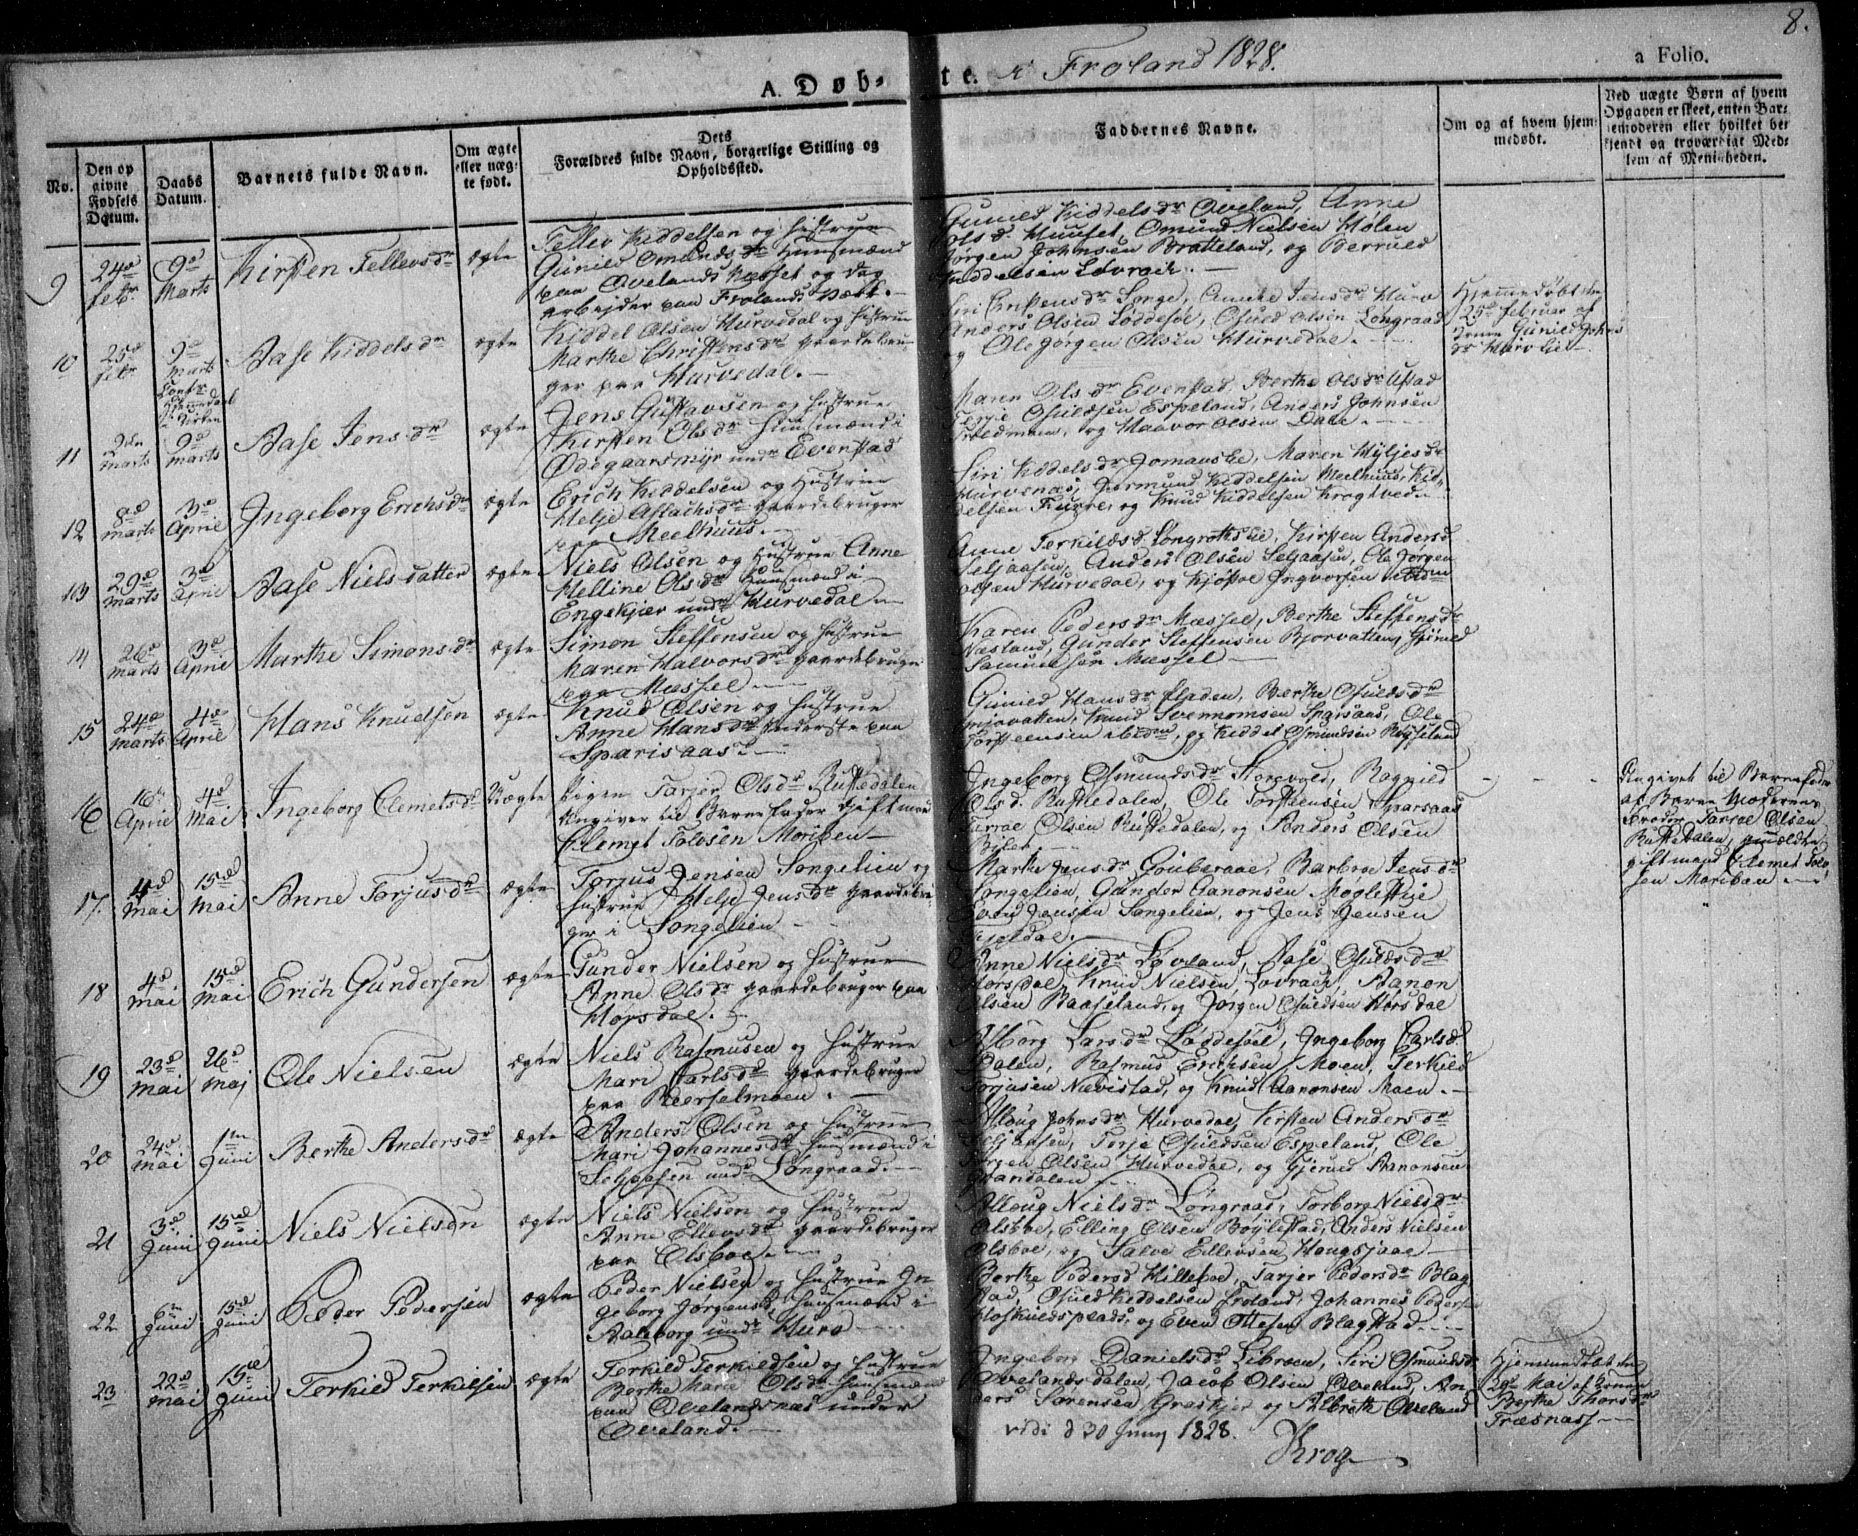 8.
A. Døb-
te. i Froland 1828.
a Folio.
No.
Den op
givne
Fødsels
Datum.
Daabs
Datum.
Barnets fulde Navn.
Om ægte
eller uæg-
te født.
Dets
Forældres fulde Navn, borgerlige Stilling og
Opholdssted.
Faddernes Navne.
Om og af hvem hjem-
medøbt.
Ved uægte Børn af hvem
Opgaven er skeet, enten Bar-
nemoderen eller hvilket be
kjendt og troværdigt Med-
lem af Menigheden.
9
24de
febr
9de
Marts
Kirsten Tellevsdr
ægte
Tellev Kiddelsen og hustrue
Gunild Omundsdr Huusmænd
paa Ovelands Næsset og dag
arbejder paa Frolands Værk.
Guniled Kiddelsdr Øveland, Anne
Olsd. Huuset, Omund Nielsen Hølen
Jørgen Johnsen Bratteland, og Berruld
Kiddelsen Lovrack.
10
25de
febr
9de
Marts
Aase Kiddelsdr
ægte
Kiddel Olsen Hurvedal og hustrue
Marthe Christensdr gaardebru
ger paa Hurvedal.
Anders Olsen Løddesøl, Osuld Olsen Longraad
og Ole Jørgen Olsen Hurvedal.
Hjemmedøbt den
25de februar af
11
2den
Marts
9de
Marts
Aase Jensdr
ægte
Jens Gustavsen og hustrue
Kirsten Olsdr Huusmænd i
Ødegaardsmyr undr Evenstad
Maren Olsdr Evenstad, Berthe Olsdr Ustad
Terje Osuldsen Espeland, Anders Johnsen
og Haavor Olsen Dale.
12
8de
Marts
3de
April
Ingeborg Erichsdr
ægte
Erich Kiddelsen og Hustrue
Helje Aslachsdr gaardebruger
paa Meelhuus.
Siri Kiddelsdr Jomaasle, Maren Hyljesdr
Hurvenæs, Gormund Kiddelsen Meelhuus, Kid-
delsen Furre, og Knud Kiddelsen Krogtved
13
29de
Marts
3de
April
Aase Nielsdatter
ægte
Niels Olsen og Hustrue Anne
Helline Olsdr Huusmænd i
Engekjær undr Hurvedal
Anne Terkildsd. Longrothslie, Kirsten Andersd
Seljaasen, Anders Olsen Seljaasen, Ole Jørgen
Olsen Hurvedal, og Kjøstol Ingvorsen
14
26de
Marts
3de
April
Marthe Simonsdr
ægte
Simon Steffensen og hustrue
Maren Halvorsdr gaardebruger
paa Mæssel
Karen Pedersdr Mæssel, Berthe Steffensdr
Næsland, Gunder Steffensen Bjorvatten,
Samuelsen Mæssel
15
24de
Marts
4de
April
Hans Knudsen
ægte
Knud Olsen og hustrue
Anne Hansdr Inderste paa
Sparisaas
Guniled Hansdr fladen, Berthe Osuldsdr
Knud Svennomsen Sparsaas, Ole
Torsteensen ibidm, og Kiddel Osmundsen Røyseland
16
16de
April
4de
Mai
Ingeborg Clemetsdr
Uægte
Pigen Tarjer Olsdr Rustedalen
Angiver til Barnefader Giftmand
Clemet Tolvsen Moriben
Ingeborg Osmundsdr Storevold, Ragnild
Olsd. Rustedalen, Ole Torsteensen Sparsaas
Tarral Olsen Rustedalen, og Anders Olsen
Angivet til Barnefader
af Barne Moderens
Broder Tarjer Olsen
Rustedalen, anmeldte
giftmand Clemet Tolv-
sen Moriben
17.
4de
Mai
15de
Mai
Anne Torjusdr
ægte
Torjus Jensen Songelien og
hustrue Helje Jensdr gaardebru
ger i Songelien
Marthe Jensdr Gouberaae, Barbroe Jensdr
Songelien, Gunder Aanonsen Moglestue
Jensen Songelien, og Jens Jensen
18
4de
Mai
15de
Mai
Erich Gundersen
ægte
Gunder Nielsen og hustrue
Anne Olsdr gaardebruger paa
Horsdal.
Anne Nielsdr Løvland, Aase Osuldsdr
Horsdal, Knud Nielsen Lovrack, Aanon
Olsen Baaseland, og Jørgen Osuldsen Horsdal
19
23de
Mai
26de
Maj
Ole Nielsen
ægte
Niels Rasmusen og hustrue
Mari Carlsdr gaardebruger
paa Reerselmoen.
Aslborg Larsdr Løddesøel, Ingeborg Carlsd.
Dalen, Rasmus Erichsen Moen, Terkild
Torjusen Nævistad, og Knud Aanonsen Moen.
20
24de
Mai
1ste
Juni
Berthe Andersdr
ægte
Anders Olsen og hustrue
Mari Johannesdr huusmænd i
Seljaasen undr Longraad.
Alloug Johnsdr Hurvedal, Kirsten Andersdr
Seljaasen, Torje Osuldsen Espeland, Ole
Jørgen Olsen Hurvedal, og Gjeruld Aanonsen
Grandalen
21
3de
Juni
15de
Juni
Niels Nielsen
ægte
Niels Nielsen og hustrue
Anne Ellevsdr gaardebruger
paa Olsboe
Alloug Nielsdr Longraad, Torborg Nielsdr
Olsboe, Elling Olsen Bøylestad, Anders Nielsen
Olsboe, og Salve Ellevsen Hougsjaae
22
6te
Juni
15de
Juni
Peder Pedersen
ægte
Peder Nielsen og hustrue In-
geborg Jørgensd. huusmænd i
Aaleborg undr Hurv
Berthe Pedersd Hilleboe, Tarjer Pedersdr Blag
stad, Osuld Kiddelsen Froland, Johannes Peders
Hoskuldsplads, og Even Ottesen Blagstad
23
22de
Mai
15de
Juni
Terkild Terkilsen
ægte
Terkild Terkildsen og hustrue
Berthe Marie Olsdr huusmænd
paa Ovelandsnæs under
Oveland.
Ingeborg Danielsdr Libroen, Siri Osmundsd.
Ovelandsdalen, Jacob Olsen Oveland, An
ders Sørensen Græskjer og Albreth Oveland
Hjemmedøbt den
29de Mai af Konen
Berthe Thorsdr
Træsnæss
vidi d 30 Juny 1828.
Krog